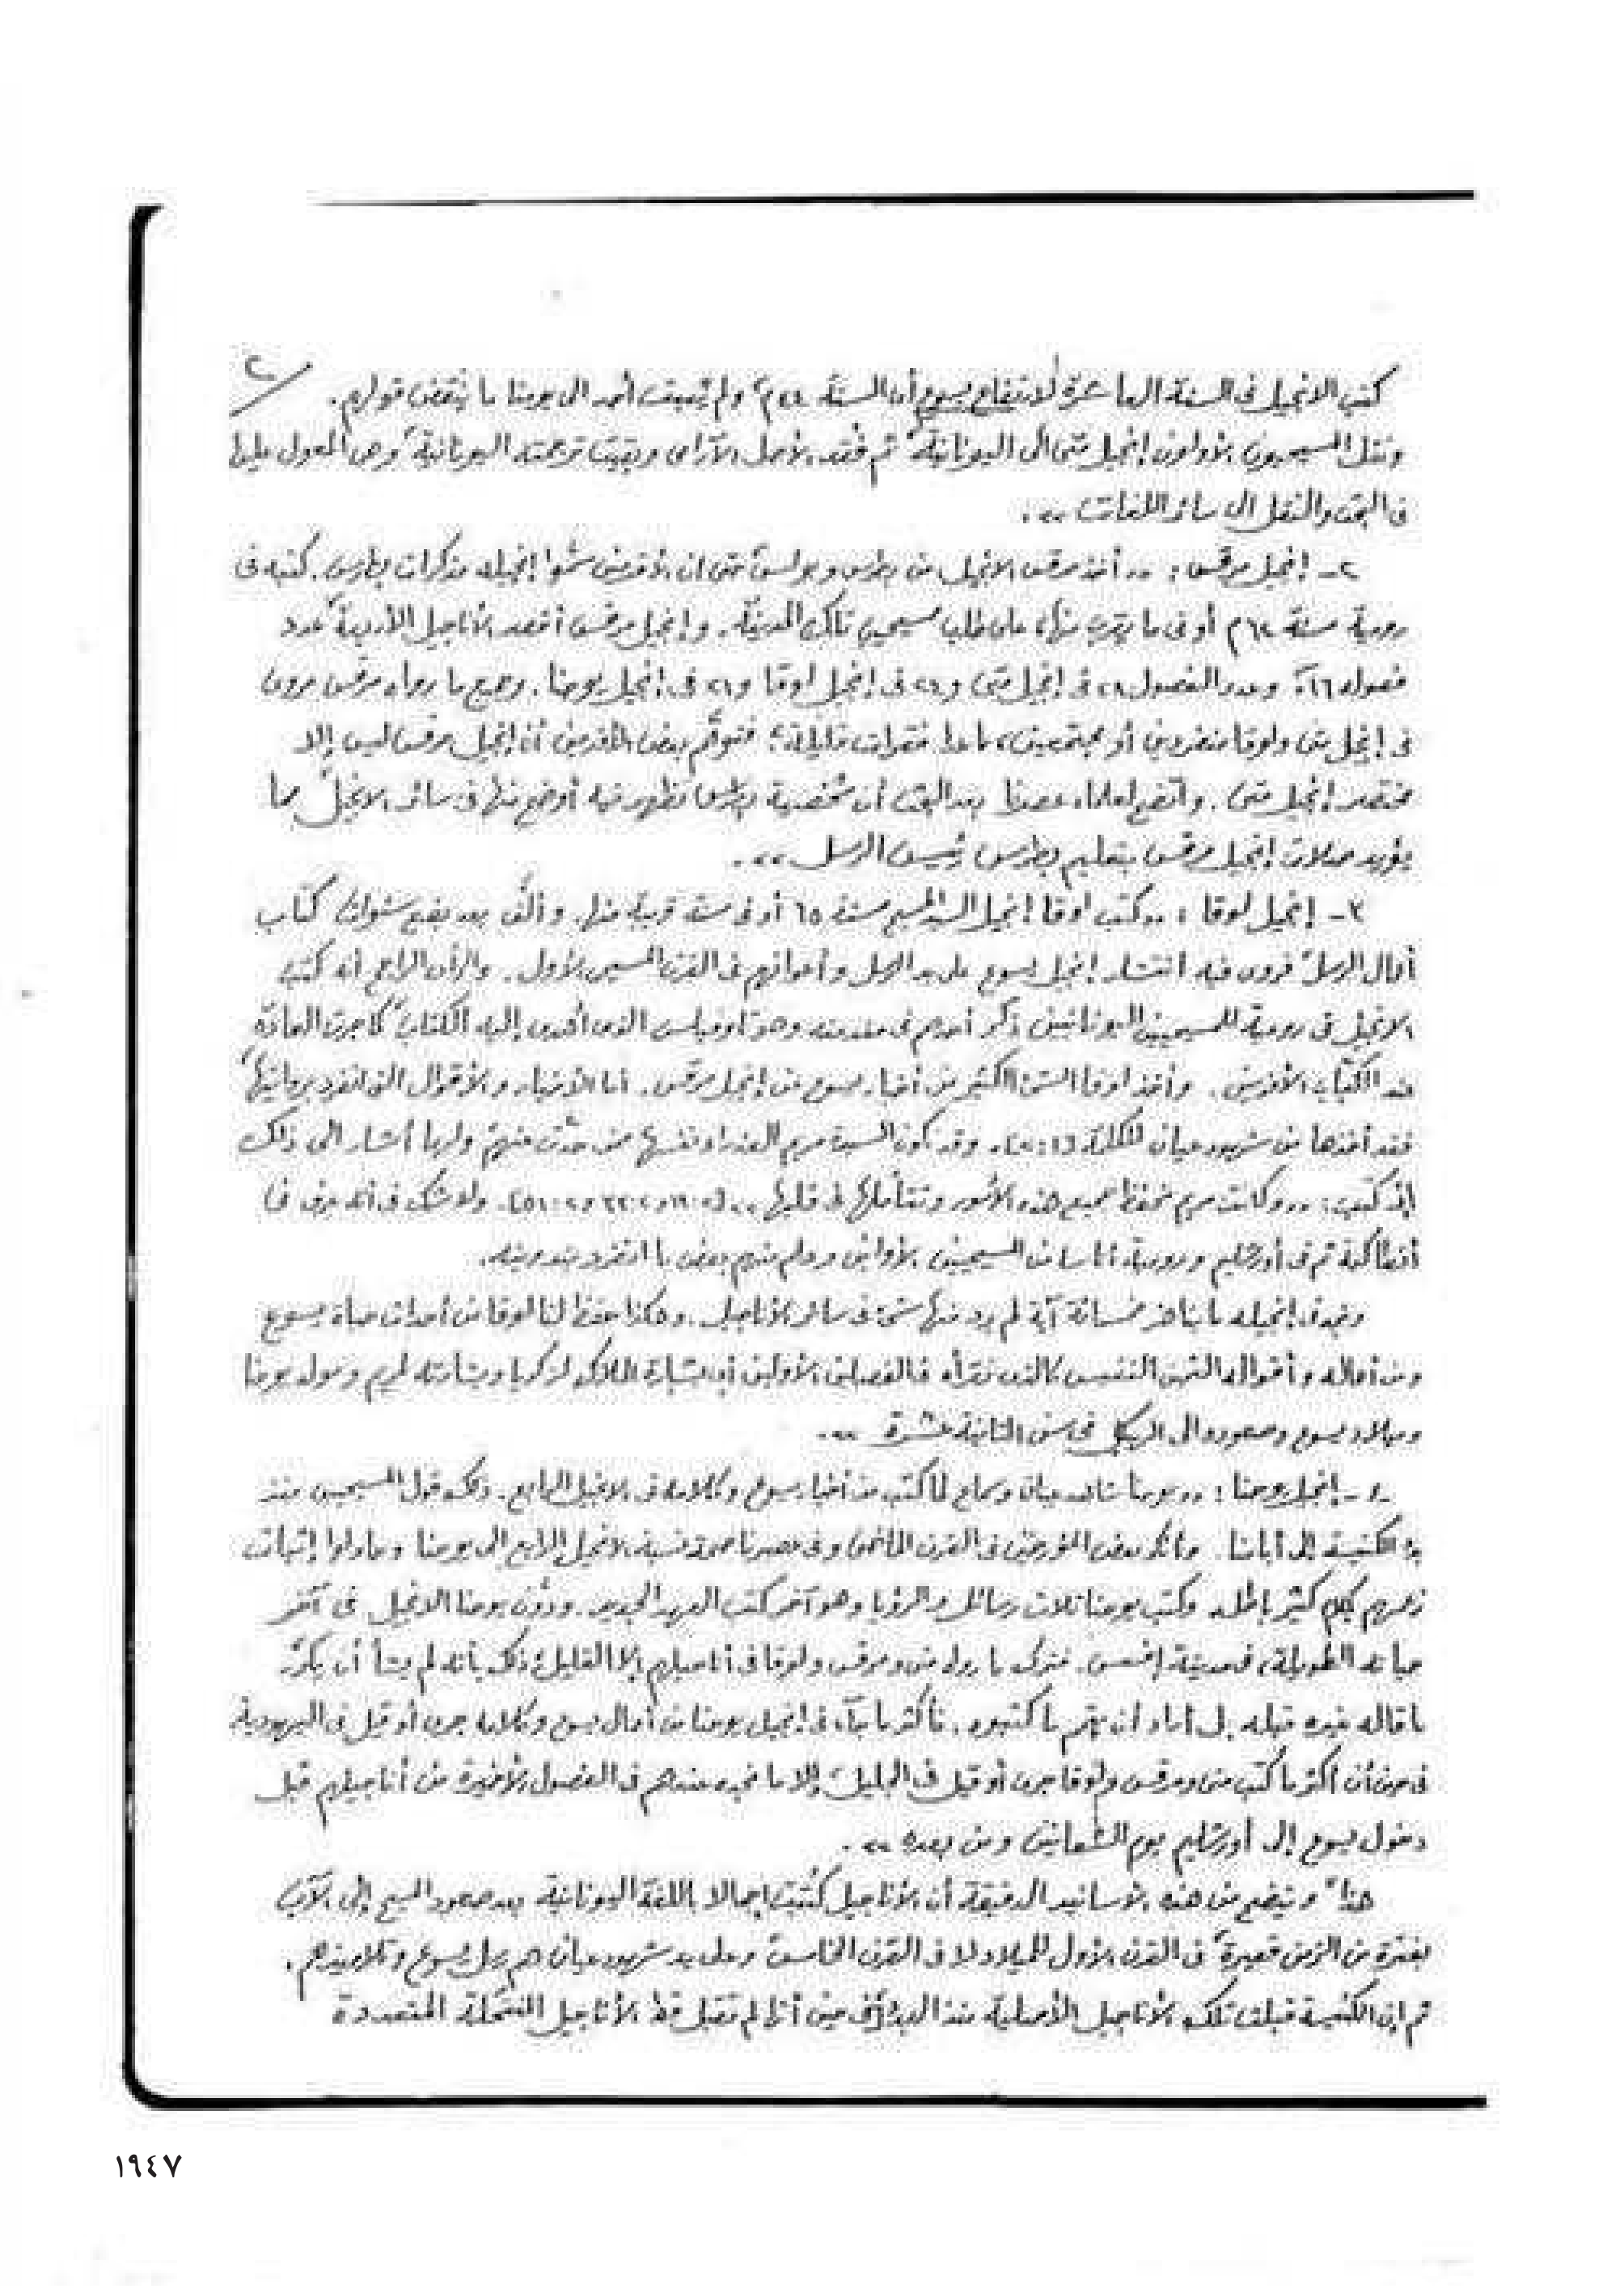 ٢
كتب الانجيل فى السنة العاشرة لارتفاع يسوع أى السنة ٤٤م، ولم يُثبت أحد الى يومنا ما ينقض قولهم.
ونقل المسيحيون الأولون إنجيل متى الى اليونانية، ثم فُقد الأصل الآرامى وبقيت ترجمته اليونانية، وهى المعول عليها
فى البحث والنقل الى سائر اللغات ،،.
٢- إنجيل مرقس: ,, أخذ مرقس الانجيل من بطرس وبولس، حتى ان الأقدمين سمّوا إنجيله مذكرات بطرس. كتبه فى
رومية سنة ٦٤م أو فى ما يقرب منها، على طلب مسيحيى تلك المدينة. وإنجيل مرقس أقصر الأناجيل الأربعة، عدد
فصوله ١٦، وعدد الفصول ٢٨ فى إنجيل متى و٢٤ فى إنجيل لوقا و٢١ فى إنجيل يوحنا. وجميع ما رواه مرقس مروىّ
فى إنجيل متى ولوقا منفردين أو مجتمعين، ما عدا فقرات قليلة؛ فتوهّم بعض الأقدمين أن إنجيل مرقس ليس إلا
مختصر إنجيل متى. واتضح لعلماء عصرنا بعد البحث أن شخصية بطرس تظهر فيه أوضح منها فى سائر الانجيل، مما
يؤيد صلات إنجيل مرقس بتعليم بطرس رئيس الرسل ،،.
٣- إنجيل لوقا: ,, كتب لوقا إنجيل السيد المسيح سنة ٦٥ أو فى سنة قريبة منها. وألّف بعد بضع سنوات كتاب
أعمال الرسل، فروى فيه انتشار إنجيل يسوع على يد الرسل وأعوانهم فى القرن المسيحى الأول. والرأى الراجح أنه كتب
الانجيل فى رومية للمسيحيين اليونانيين ذكر أحدهم فى مقدمته وهو تاوفيلس الذى أهدى إليه الكتاب، كما جرت العادة
عند الكتّاب الأقدمين. وأخذ لوقا الشئ الكثير من أخبار يسوع من إنجيل مرقس. أما الأخبار والأقوال التى انفرد بروايتها،
فقد أخذها من شهود عيان للكلمة (١:). وقد تكون السيت مريم العذراء نفسها ممن حدّث عنهم، ولربما أشار الى ذلك
إذ كتب: ,, وكانت مريم تحفظ جميع هذه الأمور وتتأملها فى قلبها ،، (٢: ١٩ و٢: ٣٣ و٢: ٥١). ولا شك فى أنه عرف فى
أنطاكية ثم فى أورشليم ورومية، أناسا من المسيحيين الأولين وعلم منهم بعض ما انفرد بتدوينه.
ونجد فى إنجيله ما يناهز خمسمائة آية لم يرد منها شئ فى سائر الأناجيل. وهكذا حفظ لنا لوقا من أحداث حياة يسوع
ومن أعماله وأقواله الثمين النفيس كالذى نقرأه فى الفصلين الأولين أى بشارة الملاك لزكريا وبشارته لمريم ومولد يوحنا
وميلاد يسوع وصعوده الى الهيكل فى سن الثانية عشرة ،،.
٤- إنجيل يوحنا: ,, يوحنا شاهد عيان وسماع لما كتب من أخبار يسوع وكلامه فى الانجيل الرابع. ذلك قول المسيحيين منذ
بدء الكنيسة إلى أيامنا. وأنكر بعض المؤرخين فى القرن الماضى وفى عصرنا صحة نسبة الانجيل الرابع إلى يوحنا وحاولوا إثبات
زعمهم بكلام كثير باطل. وكتب يوحنا ثلاث رسائل والرؤيا وهو آخر كتب العهد الجديد. ودوّن يوحنا الانجيل فى آخر
حياته الطويلة، فى مدينة إفسس. فترك ما رواه متى ومرقس ولوقا فى أناجيلهم إلا القليل؛ ذلك بأنه لم يشأ أن يكرّر
ما قاله غيره قبله بل أراد أن يتمم ما كتبوه. فأكثر ما جاء فى إنجيل يوحنا من أعمال يسوع وكلامه جرى أو قيل فى اليهودية
فى حين أن أكثر ما كتب متى ومرقس ولوقا جرى أو قيل فى الجليل، إلا ما نجده عندهم فى الفصول الأخيرة من أناجيلهم قبل
دخول يسوع إلى أورشليم يوم الشعانين ومن بعده ،،.
هذا، ويتضح من هذه الأسانيد الدقيقة أن الأناجيل كُتبت إجمالا باللغة اليونانية بعد صعود المسيح إلى الآب
بفترة من الزمن قصيرة، فى القرن الأول للميلاد لا فى القرن الخامس، وعلى يد شهود عيان هم رسل يسوع وتلاميذهم.
ثم إن الكنيسة قبلت تلك الأناجيل الأصلية منذ البدء، فى حين أنها لم تقبل قط الأناجيل المنتحلة المتعددة
١٩٤٧